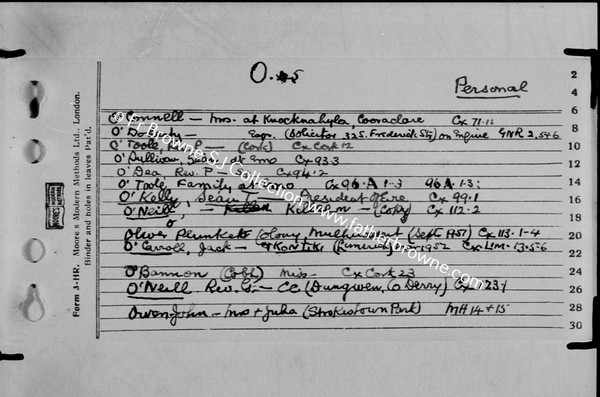 O. 5
Personal
O'Connell — Mrs. at Knocknahyla, Cooraclare Cx 71.11
O'Do — Esqr. (Solicitor 32 S. Frederick St) on Engine GNR 2,54.6
O'Toole, P — (Cork) Cx Cork 12
O'Sullivan, at Emo Cx 93.3
O'Dea, Rev. P — Cx 94.2
O'Toole, Family at Emo Cx 96.A 1-3 96A.1-3;
O'Kelly, Sean T. — President of Eire Cx 99.1
O'Neill, — Kells Rm — (Copy) Cx 112.2
Oliver Plunkett (Colony Mulhuddart (Sept 1951) Cx 113.1-4
O'Carroll, Jack — KONTIKI (Limerick) 1952 Cx LIM.13.5.6
O'Bannon (Cobh) Miss — Cx Cork 23
O'Neill Rev. G. — CC (Dungiven, Co Derry) Cx 123
Owen-John — Mrs + Julia (Strokestown Park) MH 14 + 15
2
4
6
8
10
12
14
16
18
20
22
24
26
28
30
Form 3-HR. Moore's Modern Methods Ltd., London.
Binder and holes in leaves Pat'd.
© Fr Browne S.J. Collection www.fatherbrowne.com